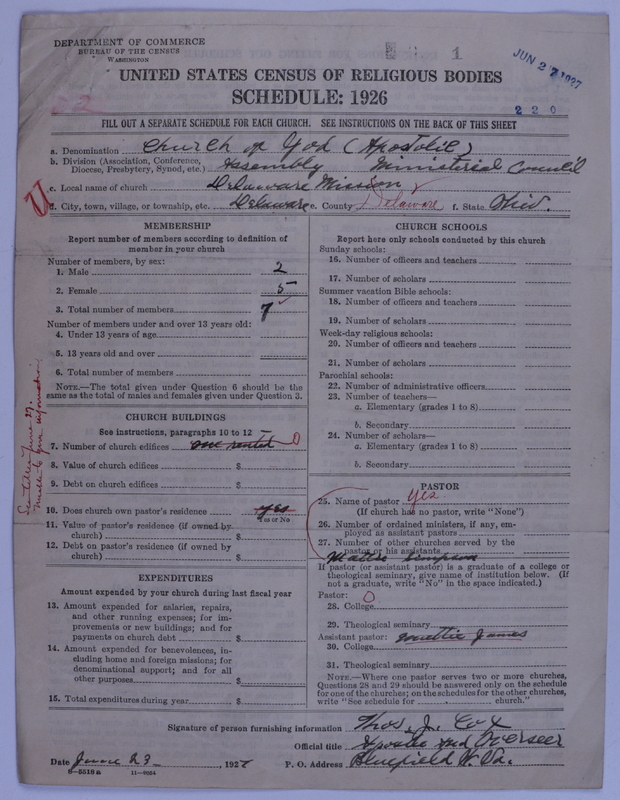 DEPARTMENT OF COMMERCE
BUREAU OF THE CENSUS
WASHINGTON
1
JUN 27 1927
UNITED STATES CENSUS OF RELIGIOUS BODIES
SCHEDULE: 1926
22
220
FILL OUT A SEPARATE SCHEDULE FOR EACH CHURCH. SEE INSTRUCTIONS ON THE BACK OF THIS SHEET
a. Denomination Church of God (Apostolic)
b. Division (Association, Conference, Diocese, Presbytery, Synod, etc.) Assembly Ministerial Council
c. Local name of church Delaware Mission
d. City, town, village, or township, etc. Delaware e. County Delaware f. State Ohio.
MEMBERSHIP
Report number of members according to definition of
member in your church
Number of members, by sex:
1. Male 2
2. Female 5
3. Total number of members 7
Number of members under and over 13 years old:
4. Under 13 years of age
5. 13 years old and over
6. Total number of members
NOTE.—The total given under Question 6 should be the
same as the total of males and females given under Question 3.
CHURCH BUILDINGS
See instructions, paragraphs 10 to 12
7. Number of church edifices one rented 0
8. Value of church edifices $
9. Debt on church edifices $
10. Does church own pastor's residence yes
Yes or No
11. Value of pastor's residence (if owned by
church) $
12. Debt on pastor's residence (if owned by
church) $
EXPENDITURES
Amount expended by your church during last fiscal year
13. Amount expended for salaries, repairs,
and other running expenses; for im-
provements or new buildings; and for
payments on church debt $
14. Amount expended for benevolences, in-
cluding home and foreign missions; for
denominational support; and for all
other purposes $
15. Total expenditures during year $
CHURCH SCHOOLS
Report here only schools conducted by this church
Sunday schools:
16. Number of officers and teachers
17. Number of scholars
Summer vacation Bible schools:
18. Number of officers and teachers
19. Number of scholars
Week-day religious schools:
20. Number of officers and teachers
21. Number of scholars
Parochial schools:
22. Number of administrative officers
23. Number of teachers—
a. Elementary (grades 1 to 8)
b. Secondary
24. Number of scholars—
a. Elementary (grades 1 to 8)
b. Secondary
PASTOR
25. Name of pastor yes
(If church has no pastor, write "None")
26. Number of ordained ministers, if any, em-
ployed as assistant pastors
27. Number of other churches served by the
pastor or his assistants
Mattie Simpson
If pastor (or assistant pastor) is a graduate of a college or
theological seminary, give name of institution below. (If
not a graduate, write "No" in the space indicated.)
Pastor: 0
28. College
29. Theological seminary
Assistant pastor: James
30. College
31. Theological seminary
NOTE.—Where one pastor serves two or more churches,
Questions 28 and 29 should be answered only on the schedule
for one of the churches; on the schedules for the other churches,
write "See schedule for church."
Signature of person furnishing information Thos. J. Cox
Official title Apostle and Overseer
Date June 23, 1927 P. O. Address Bluefield W. Va.
6-5518a 11-9024